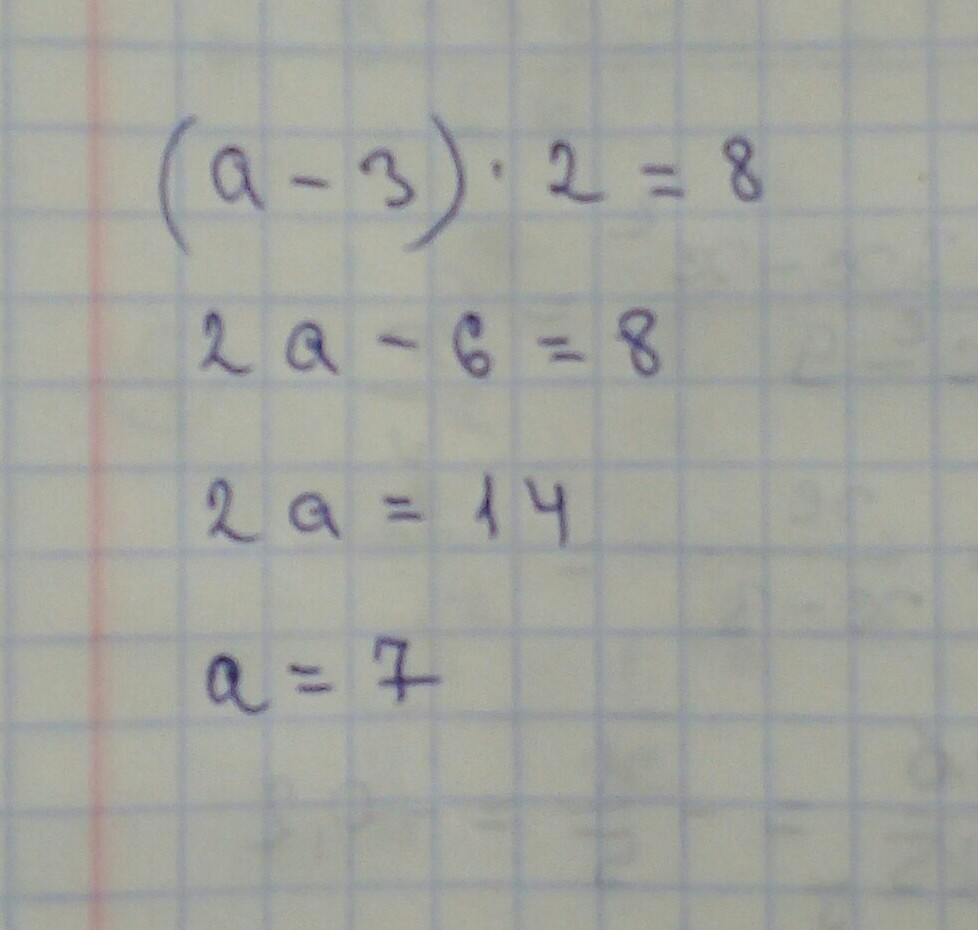 (a - 3) · 2 = 8
2a - 6 = 8
2a = 14
a = 7